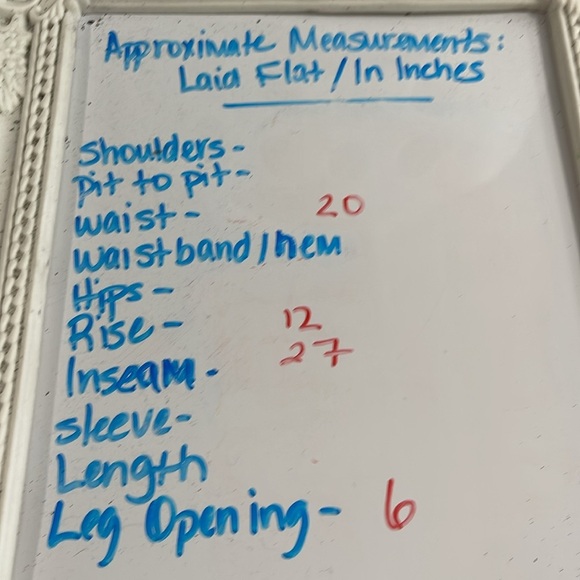 Approximate Measurements:
Laid Flat/In Inches
Shoulders-
pit to pit-
waist- 20
waistband/hem
Hips-
Rise- 12
Inseam- 27
sleeve-
Length
Leg Opening- 6